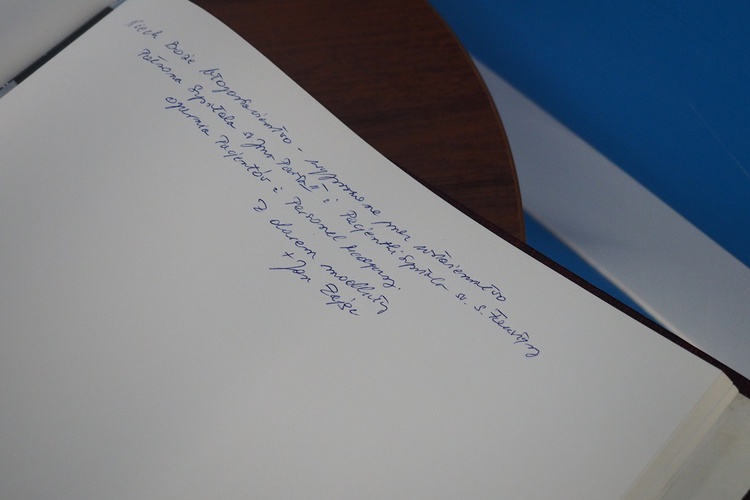 Niech Boże błogosławieństwo - wyproszone przez wstawiennictwo
Patrona Szpitala św Jana Pawła II i Pacjentki Szpitala św. s. Faustyny
ogarnia Pacjentów i Personel Medyczny.
Z darem modlitwy
+ Jan Zając